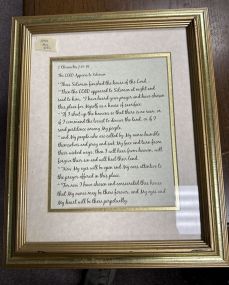 2 Chronicles 7:11-16
The LORD Appears to Solomon
Thus Solomon finished the house of the Lord
Then the LORD appeared to Solomon at night and
said to him, "I have heard your prayer and have chosen
this place for Myself as a house of sacrifice.
"If I shut up the heavens so that there is no rain, or
if I command the locust to devour the land, or if I
send pestilence among My people,
and My people who are called by My name humble
themselves and pray and seek My face and turn from
their wicked ways, then I will hear from heaven, will
forgive their sin and will heal their land.
"Now My eyes will be open and My ears attentive to
the prayer offered in this place.
"For now I have chosen and consecrated this house
that My name may be there forever, and My eyes and
My heart will be there perpetually.